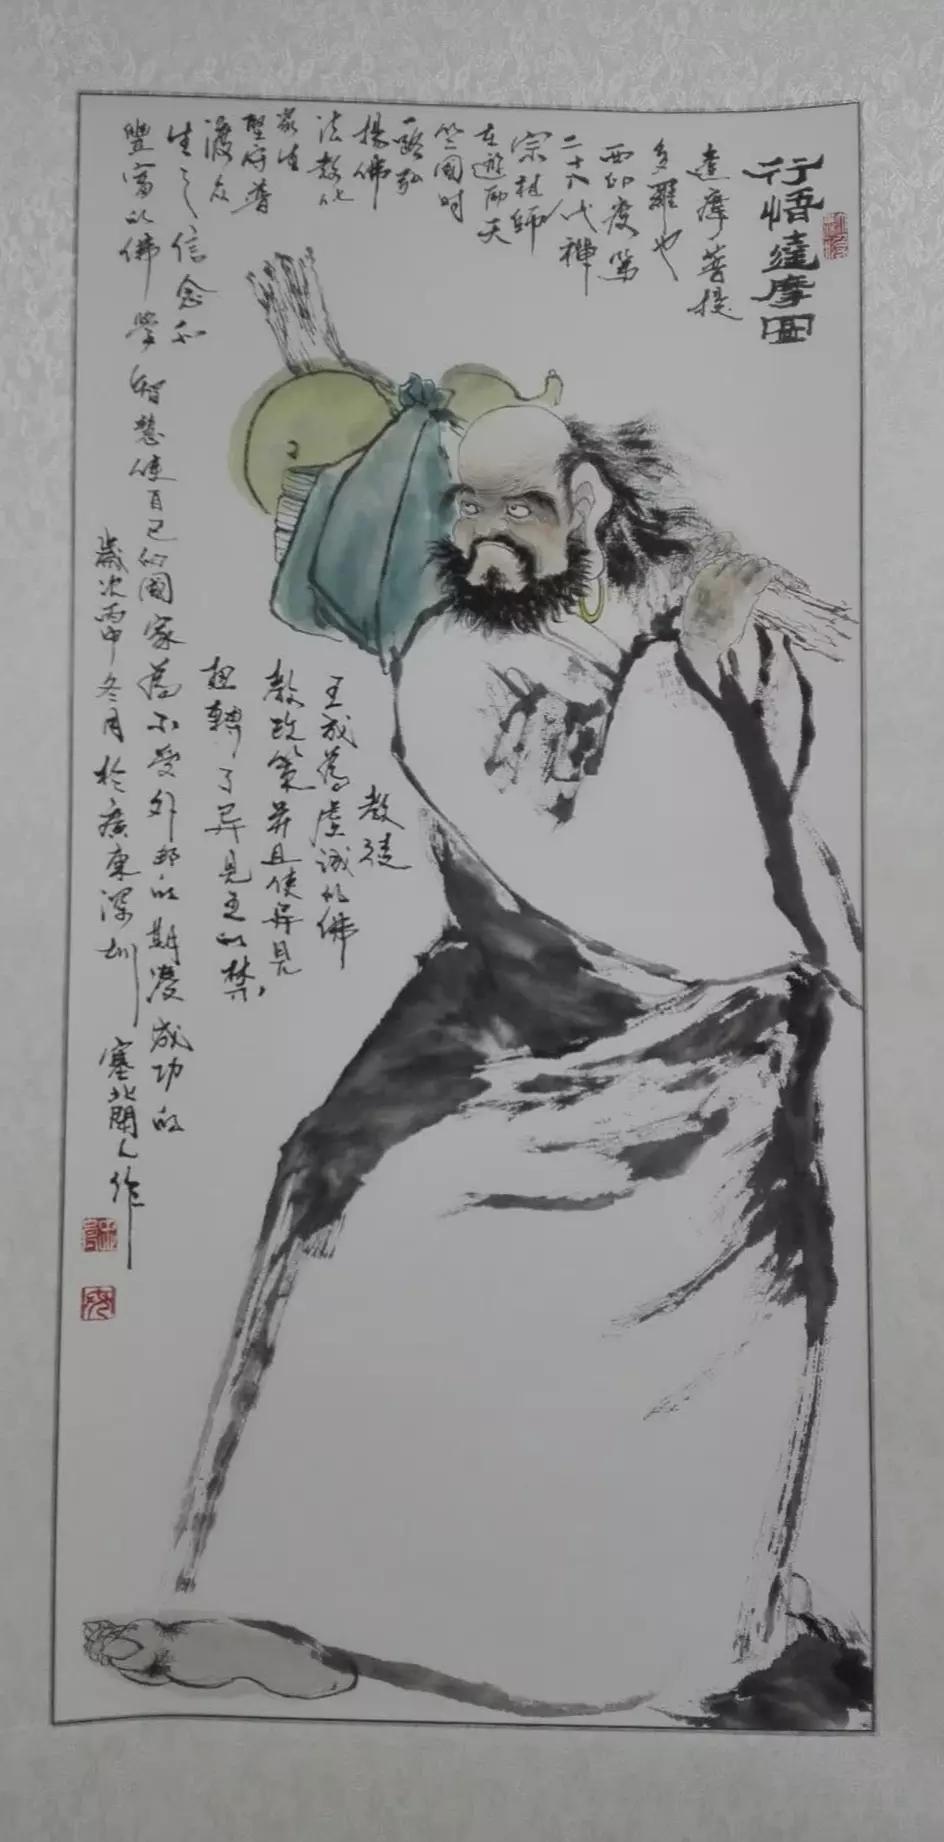 行悟達摩圖
達摩菩提
多羅也
西印度第
二十八代禅
宗祖師
在遊两天
竺國时
一路弘
揚佛
法教化
衆生
堅守普
渡众
生之信念和
豐富的佛学智慧使自己的國家为不受外邦的期凌成功的
扭轉了异見王的禁
教政策并且使异見
王成為虔诚的佛
教徒
歲次丙申冬月於廣東深圳塞北閑人作